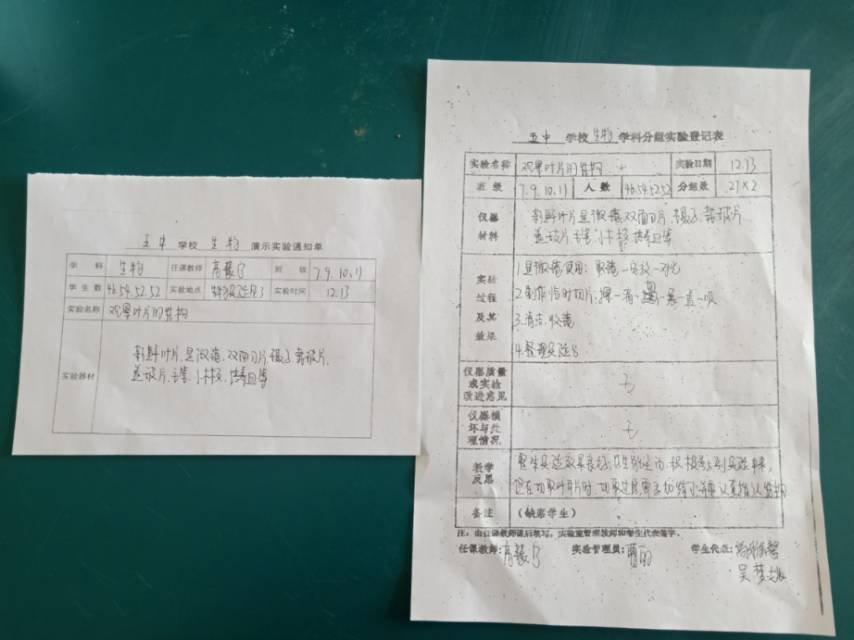 五中 学校 生物 演示实验通知单
学科 生物 任课教师 班级 7.9.10.11
学生数 46.54.52.52 实验地点 实验时间 12.13
实验名称 观察叶片的结构
实验器材 新鲜叶片、显微镜、双面刀片、镊子、载玻片、
盖玻片、毛笔、小木板、培养皿等
五中 学校 生物 学科分组实验登记表
实验名称 观察叶片的结构 实验日期 12.13
班级 7.9.10.11 人数 46.54.52.52 分组数 27×2
仪器材料 新鲜叶片、显微镜、双面刀片、镊子、载玻片
盖玻片、毛笔、小木板、培养皿等
实验过程及其效果
1.显微镜使用:取镜—安放—对光
2.制作临时切片:
3.清洁、收镜
4.整理实验台
仪器质量或实验改进意见 无
仪器损坏与处理情况 无
教学反思 整体实验效果良好,
备注 (缺席学生)
注:由任课教师课后填写,实验室管理教师和学生代表签字。
任课教师: 实验管理员: 学生代表: